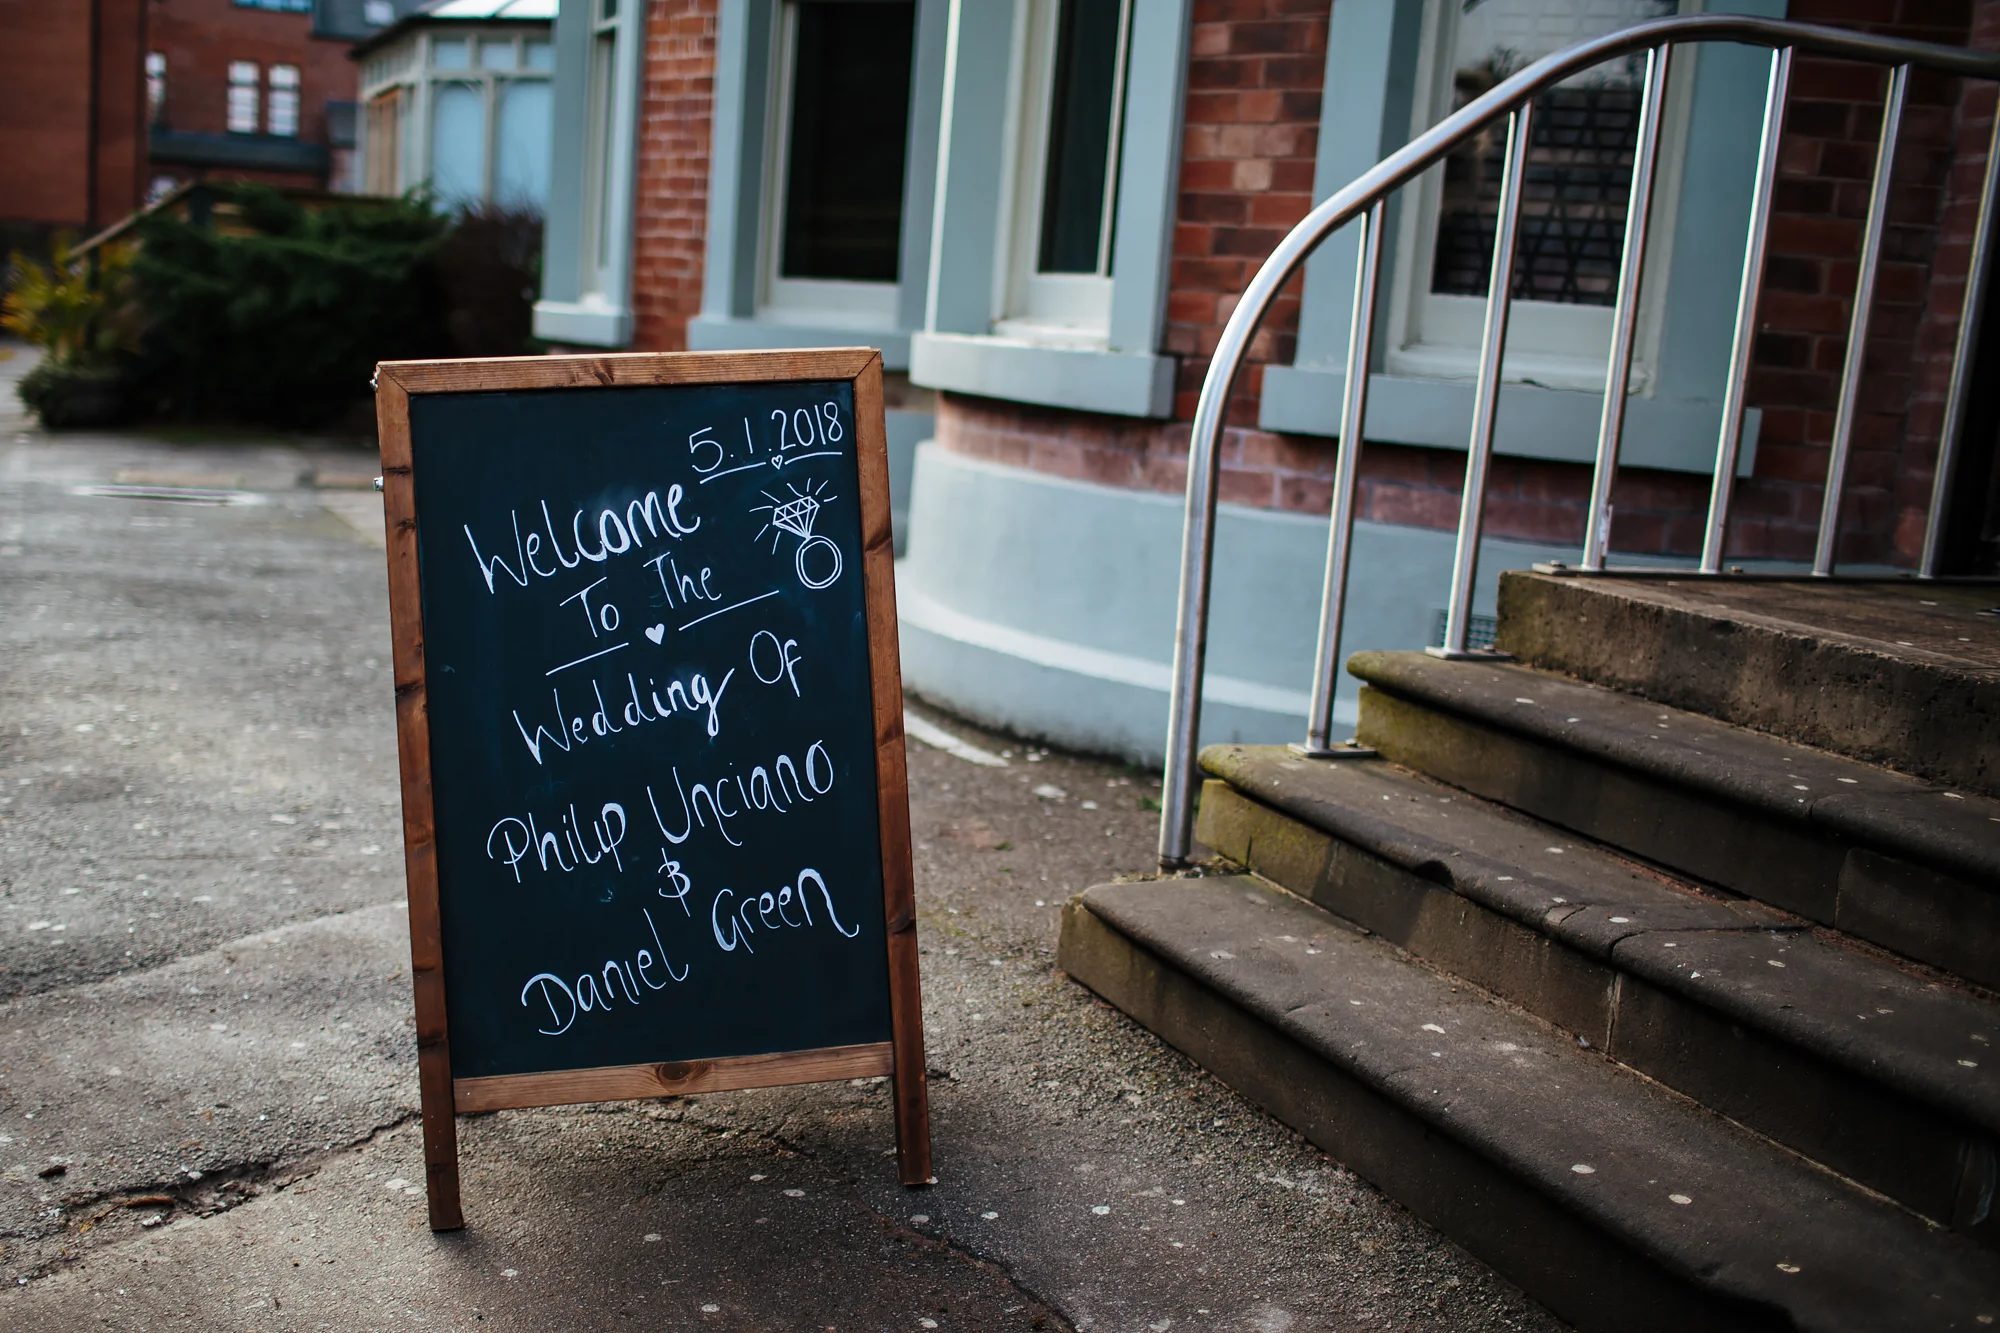 5.1.2018
Welcome
To The
Wedding Of
Philip Unciano
&
Daniel Green